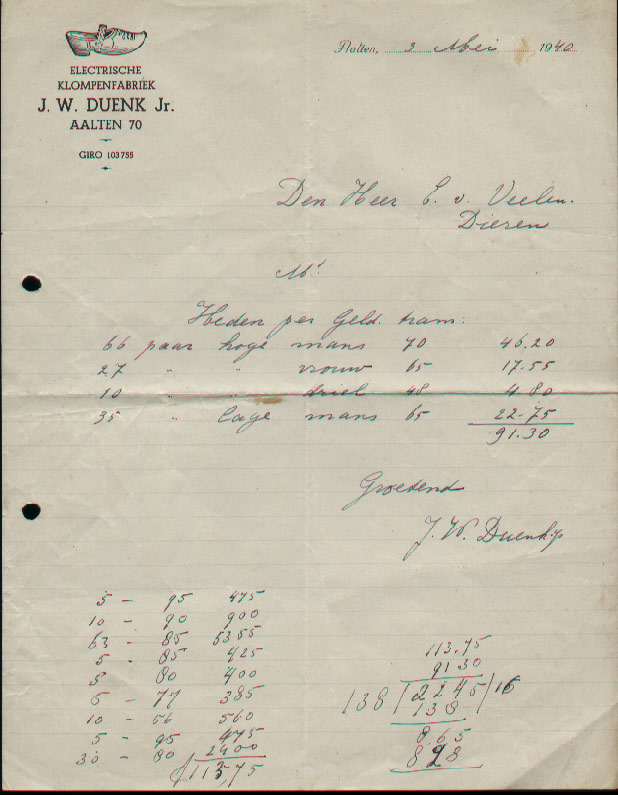 ELECTRISCHE
KLOMPENFABRIEK
J. W. DUENK Jr.
AALTEN 70
GIRO 103755
Aalten, 3 Mei 1940
Den Heer E. v. Veelen.
Dieren
M'
Heden per Geld. tram:
66 paar hoge mans 70 46.20
27 " " vrouw 65 17.55
10 " " driel 48 4 80
35 " lage mans 65 22.75
91.30
Groetend
J. W. Duenk Jr
5 - 95 475
10 - 90 900
63 - 85 5355
5 - 85 425
5 - 80 400
5 - 77 385
10 - 56 560
5 - 95 475
30 - 80 2400
113,75
113.75
91 30
138 / 2245 / 16
138
865
828